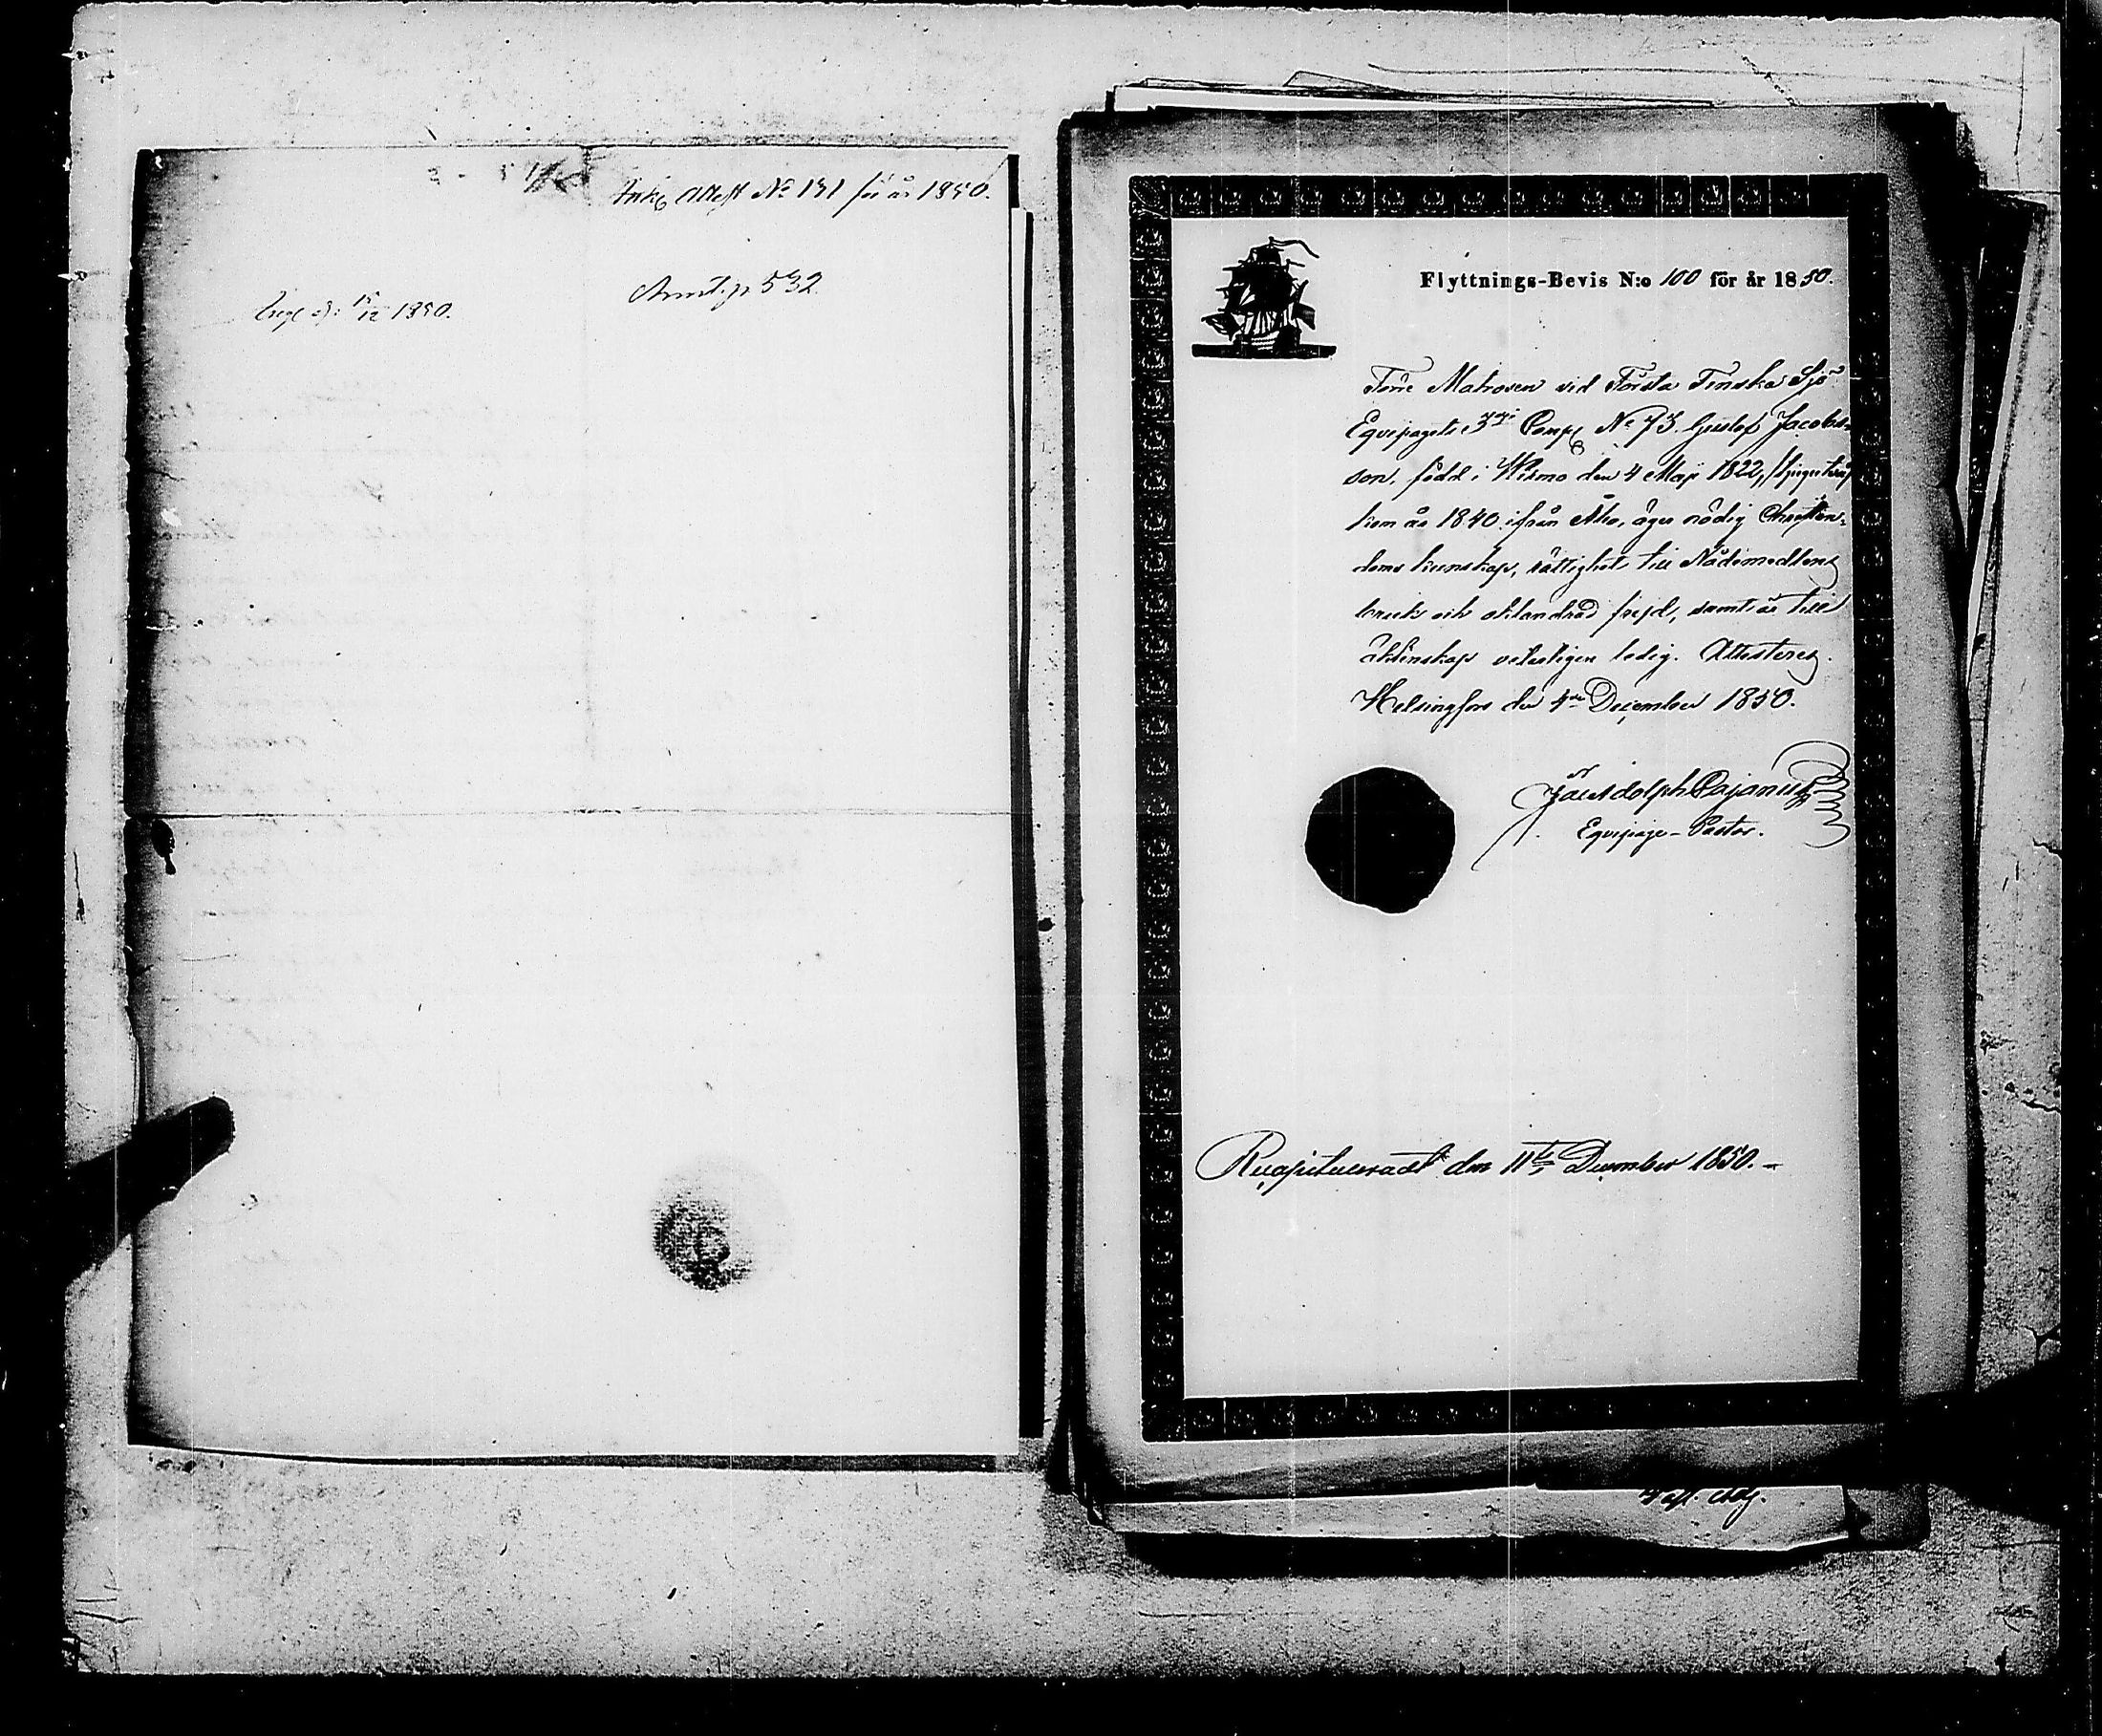 Ink: Attest No 131 för år 1850.
Annot. p 532.
15/12 1850.
Flyttnings-Bevis N:o 100 för år 1850.
Förre Matrosen vid Första Finska Sjö
Equipagets 3dje Comp: No 73. Gustaf Jacobs-
son, född i Wirmo den 4 Maji 1822,
kom år 1840 ifrån Åbo, äger nödig Christen-
doms kunskap, rättighet till Nådemedlens
bruk och oklandrad frejd, samt är till
äktenskap veterligen ledig. Attesteras.
Helsingfors den 4de December 1850.
Jac Adolph Pajanus
Equipage-Pastor.
Recapituleradt den 11te December 1850.-